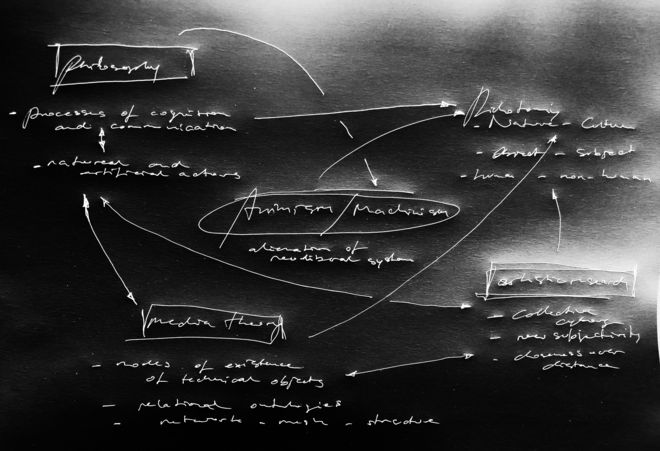 philosophy
- processes of cognition
and communication
- natural and
artificial actions
Dichotomy
- Nature - Culture
- object - subject
- human - non-human
Animism/Machinism
alienation of
neoliberal system
artistic research
- collective
- new subjectivity
- closeness over
distance
media theory
- modes of existence
of technical objects
- relational ontologies
- networks - mesh - structure